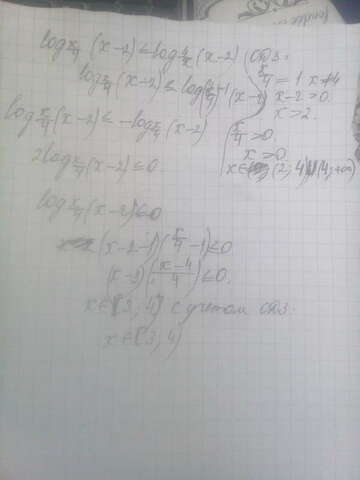 log x/4 (x-2) ≤ log 4/x (x-2)
log x/4 (x-2) ≤ log (x/4)^-1 (x-2)
log x/4 (x-2) ≤ -log x/4 (x-2)
2log x/4 (x-2) ≤ 0
log x/4 (x-2) ≤ 0
(x-2-1)(x/4-1) ≤ 0
(x-3)(x-4/4) ≤ 0.
x∈[3;4] с учетом ОДЗ.
x∈[3;4)
ОДЗ:
x/4 = 1 x≠4
x-2>0.
x>2.
x/4>0.
x>0
x∈(2;4)U(4;+∞)